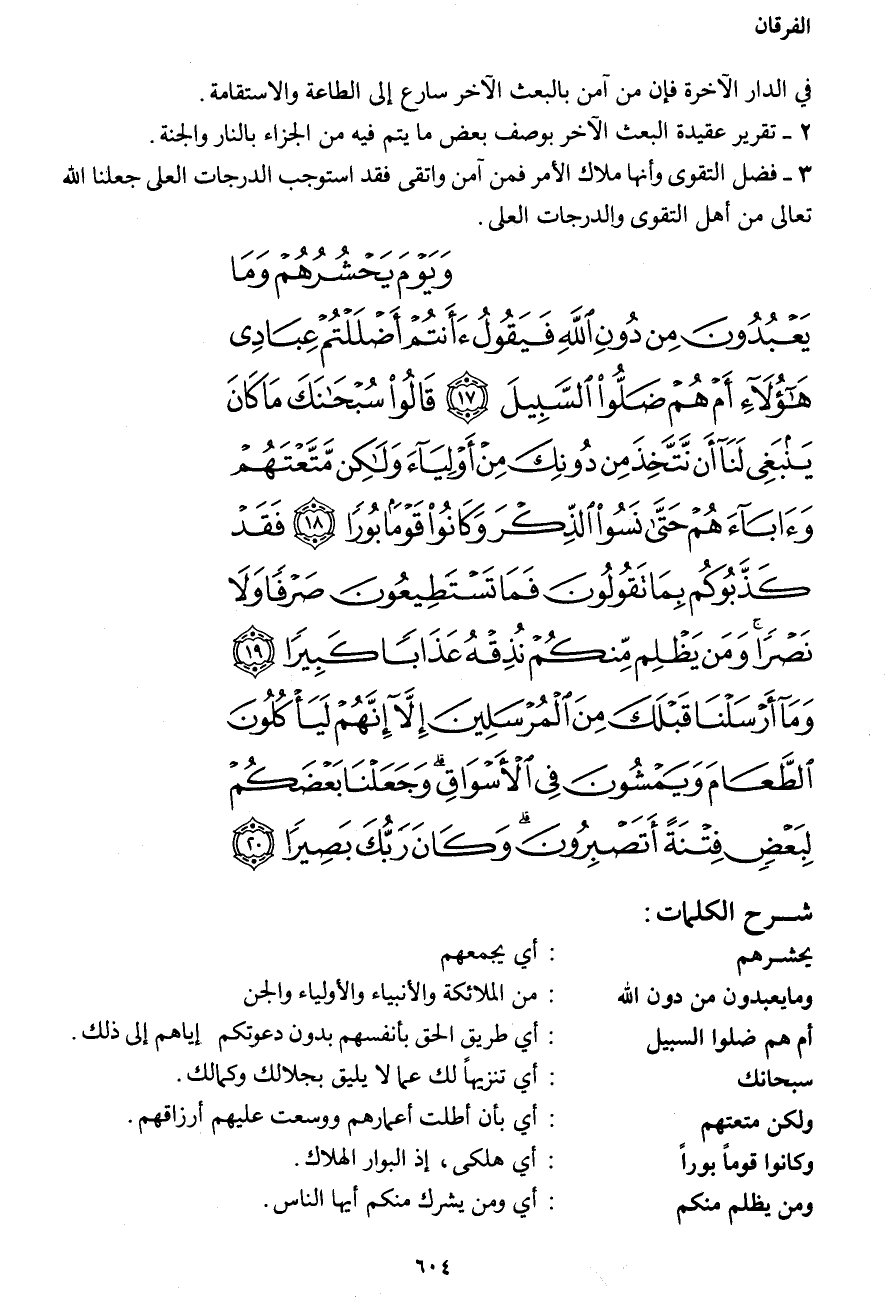 الفرقان
في الدار الآخرة فإن من آمن بالبعث الآخر سارع إلى الطاعة والاستقامة.
٢ ـ تقرير عقيدة البعث الآخر بوصف بعض ما يتم فيه من الجزاء بالنار والجنة.
٣ ـ فضل التقوى وأنها ملاك الأمر فمن آمن واتقى فقد استوجب الدرجات العلى جعلنا الله
تعالى من أهل التقوى والدرجات العلى.
وَيَوْمَ يَحْشُرُهُمْ وَمَا
يَعْبُدُونَ مِن دُونِ ٱللَّهِ فَيَقُولُ ءَأَنتُمْ أَضْلَلْتُمْ عِبَادِى
هَٰٓؤُلَآءِ أَمْ هُمْ ضَلُّوا۟ ٱلسَّبِيلَ ١٧ قَالُوا۟ سُبْحَٰنَكَ مَا كَانَ
يَنۢبَغِى لَنَآ أَن نَّتَّخِذَ مِن دُونِكَ مِنْ أَوْلِيَآءَ وَلَٰكِن مَّتَّعْتَهُمْ
وَءَابَآءَهُمْ حَتَّىٰ نَسُوا۟ ٱلذِّكْرَ وَكَانُوا۟ قَوْمًۢا بُورًا ١٨ فَقَدْ
كَذَّبُوكُم بِمَا تَقُولُونَ فَمَا تَسْتَطِيعُونَ صَرْفًا وَلَا
نَصْرًا ۚ وَمَن يَظْلِم مِّنكُمْ نُذِقْهُ عَذَابًا كَبِيرًا ١٩
وَمَآ أَرْسَلْنَا قَبْلَكَ مِنَ ٱلْمُرْسَلِينَ إِلَّآ إِنَّهُمْ لَيَأْكُلُونَ
ٱلطَّعَامَ وَيَمْشُونَ فِى ٱلْأَسْوَاقِ ۗ وَجَعَلْنَا بَعْضَكُمْ
لِبَعْضٍ فِتْنَةً أَتَصْبِرُونَ ۗ وَكَانَ رَبُّكَ بَصِيرًا ٢٠
شـرح الكلمات :
يحشـرهم : أي يجمعهم
ومايعبدون من دون الله : من الملائكة والأنبياء والأولياء والجن
أم هم ضلوا السبيل : أي طريق الحق بأنفسهم بدون دعوتكم إياهم إلى ذلك.
سبحانك : أي تنزيهاً لك عما لا يليق بجلالك وكمالك.
ولكن متعتهم : أي بأن أطلت أعمارهم ووسعت عليهم أرزاقهم.
وكانوا قوماً بوراً : أي هلكى، إذ البوار الهلاك.
ومن يظلم منكم : أي ومن يشرك منكم أيها الناس.
٦٠٤